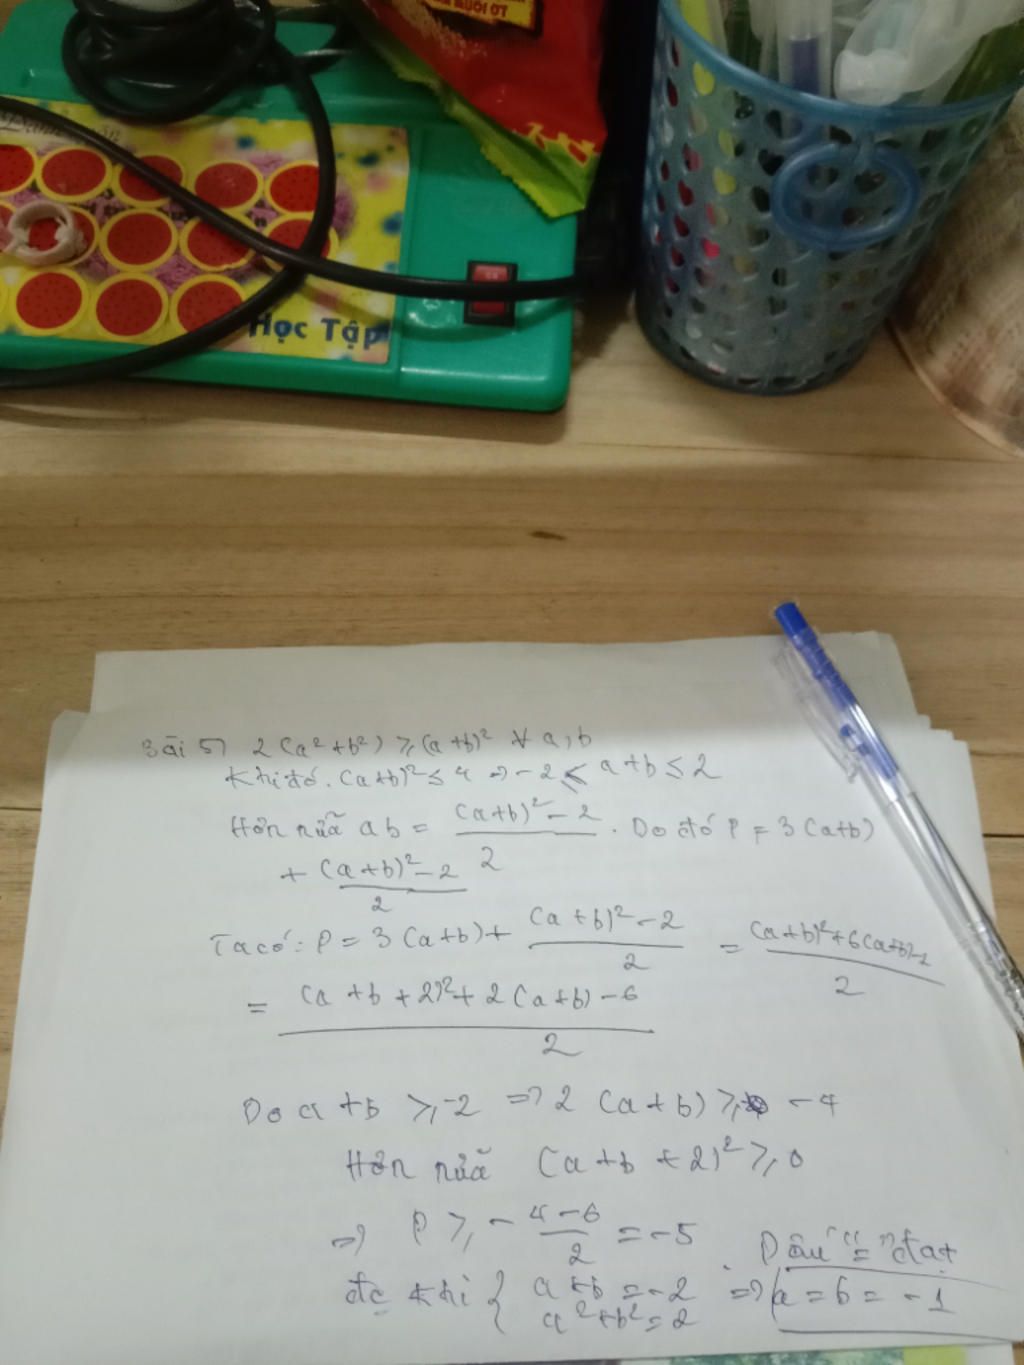 MUỐI ỚT
Học Tập
Bài 5) 2(a²+b²) ≥ (a+b)² ∀ a, b
Khi đó. (a+b)² ≤ 4 => -2 ≤ a+b ≤ 2
Hơn nữa ab = \frac{(a+b)² - 2}{2}. Do đó P = 3(a+b)
+ \frac{(a+b)² - 2}{2}
Ta có: P = 3(a+b) + \frac{(a+b)² - 2}{2} = \frac{(a+b)² + 6(a+b) - 2}{2}
= \frac{(a+b+2)² + 2(a+b) - 6}{2}
Do a+b ≥ -2 => 2(a+b) ≥ -4
Hơn nữa (a+b+2)² ≥ 0
=> P ≥ \frac{-4-6}{2} = -5. Dấu "=" đạt
đc khi { a+b = -2 => a = b = -1
a²+b² = 2